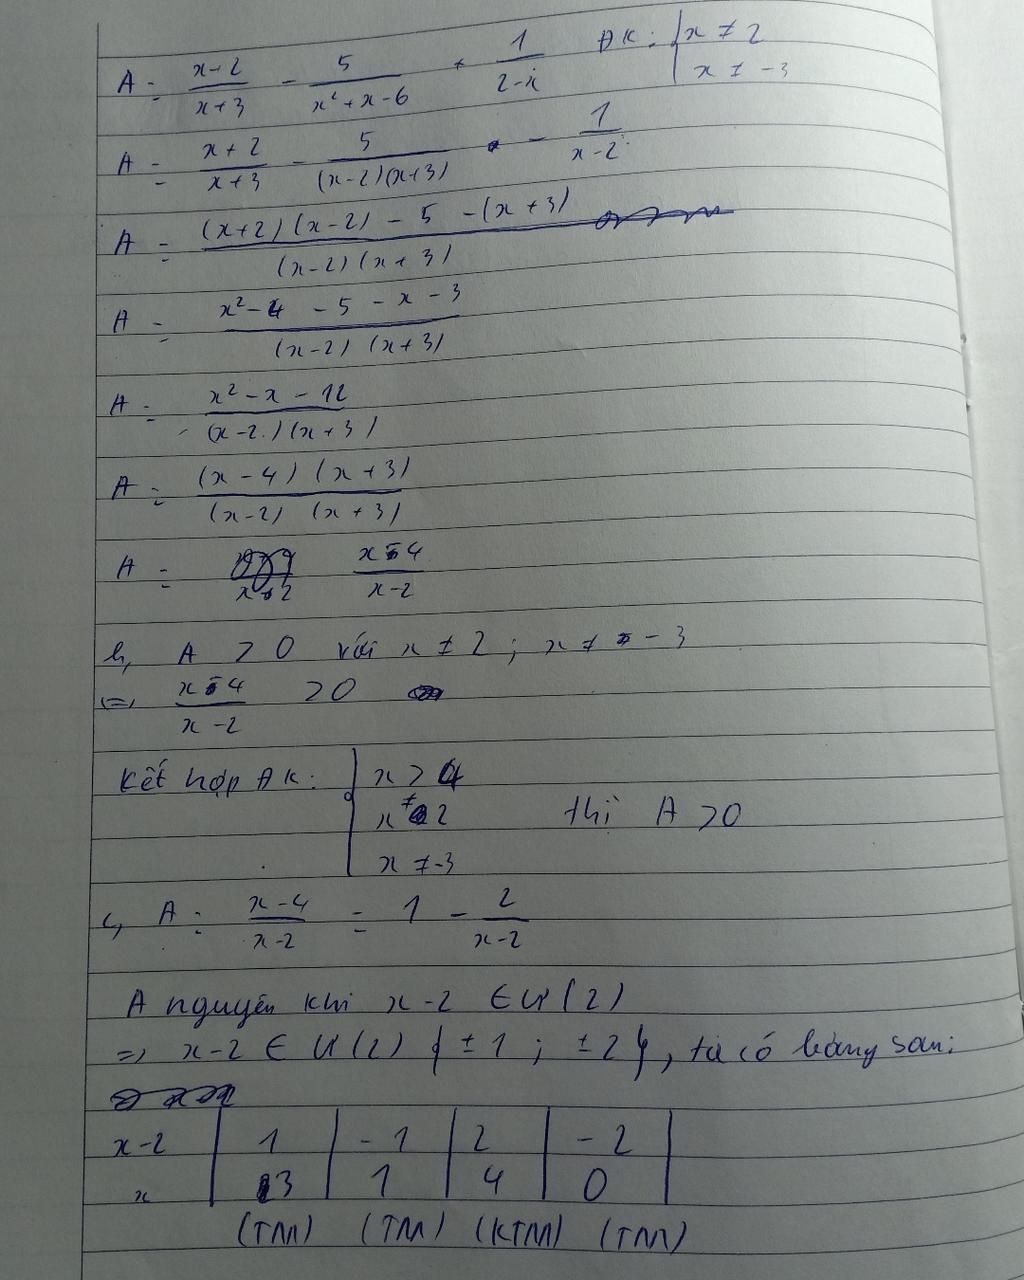 A = \frac{x+2}{x+3} - \frac{5}{x^2+x-6} + \frac{1}{2-x} ĐK: { x ≠ 2
x ≠ -3
A = \frac{x+2}{x+3} - \frac{5}{(x-2)(x+3)} - \frac{1}{x-2}
A = \frac{(x+2)(x-2) - 5 - (x+3)}{(x-2)(x+3)}
A = \frac{x^2-4-5-x-3}{(x-2)(x+3)}
A = \frac{x^2-x-12}{(x-2)(x+3)}
A = \frac{(x-4)(x+3)}{(x-2)(x+3)}
A = \frac{x-4}{x-2}
b, A > 0 với x ≠ 2 ; x ≠ -3
=> \frac{x-4}{x-2} > 0
Kết hợp ĐK: { x > 4
x ≠ 2 thì A > 0
x ≠ -3
c, A = \frac{x-4}{x-2} = 1 - \frac{2}{x-2}
A nguyên khi x-2 ∈ Ư(2)
=> x-2 ∈ Ư(2) { ±1 ; ±2 }, ta có bảng sau:
x-2 | 1 | -1 | 2 | -2 |
x | 3 | 1 | 4 | 0 |
(TM) (TM) (KTM) (TM)